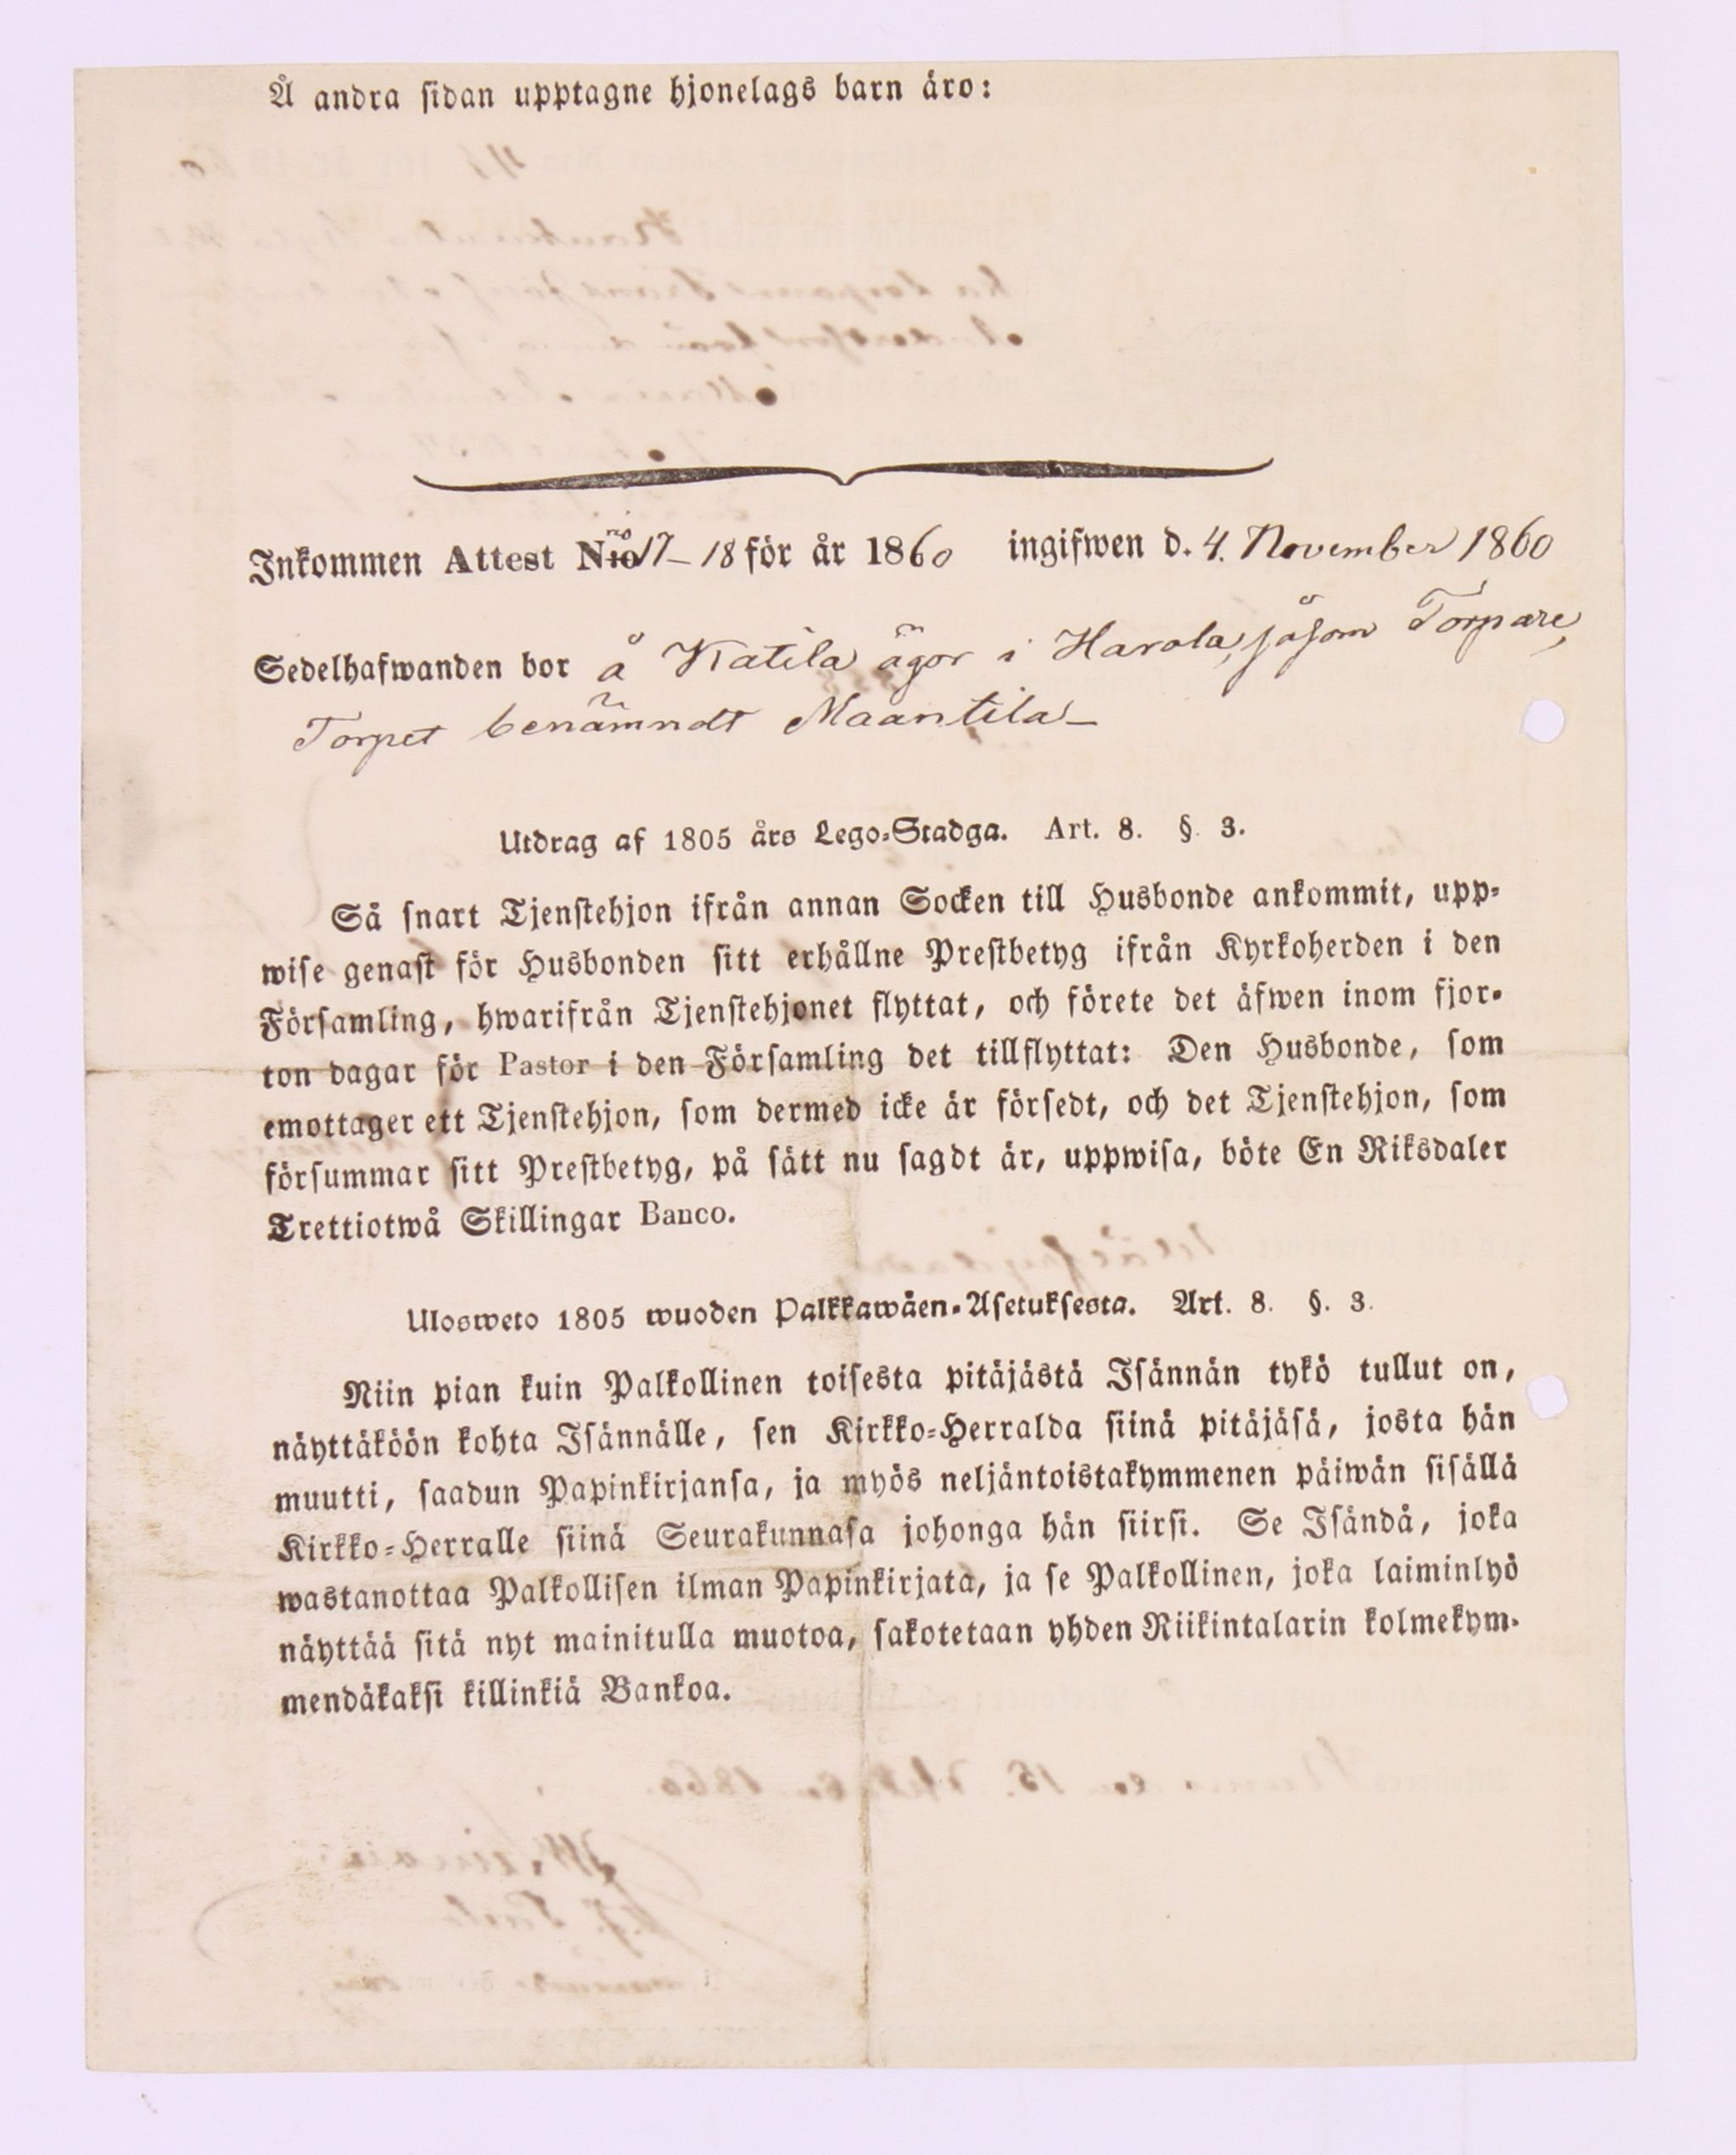 Å andra sidan upptagne hjonelags barn äro:
Inkommen Attest N:io no 17-18 för år 1860 ingifwen d. 4. November 1860
Sedelhafwanden bor å Katila ägor i Harola, såsom Torpare,
Torpet benämndt Maantila-
Utdrag af 1805 års Lego-Stadga. Art. 8. §. 3.
Så snart Tjenstehjon ifrån annan Socken till Husbonde ankommit, upp-
wise genast för Husbonden sitt erhållne Prestbetyg ifrån Kyrkoherden i den
Församling, hwarifrån Tjenstehjonet flyttat, och förete det äfwen inom fjor-
ton dagar för Pastor i den Församling det tillflyttat: Den Husbonde, som
emottager ett Tjenstehjon, som dermed icke är försedt, och det Tjenstehjon, som
försummar sitt Prestbetyg, på sätt nu sagdt är, uppwisa, böte En Riksdaler
Trettiotwå Skillingar Banco.
Ulosweto 1805 wuoden Palkkawäen-Asetuksesta. Art. 8. §. 3.
Niin pian kuin Palkollinen toisesta pitäjästä Isännän tykö tullut on,
näyttäköön kohta Isännälle, sen Kirkko-Herralda siinä pitäjäsä, josta hän
muutti, saadun Papinkirjansa, ja myös neljäntoistakymmenen päiwän sisällä
Kirkko-Herralle siinä Seurakunnasa johonga hän siirsi. Se Isändä, joka
wastanottaa Palkollisen ilman Papinkirjata, ja se Palkollinen, joka laiminlyö
näyttää sitä nyt mainitulla muotoa, sakotetaan yhden Riikintalarin kolmekym-
mendäkaksi killinkiä Bankoa.